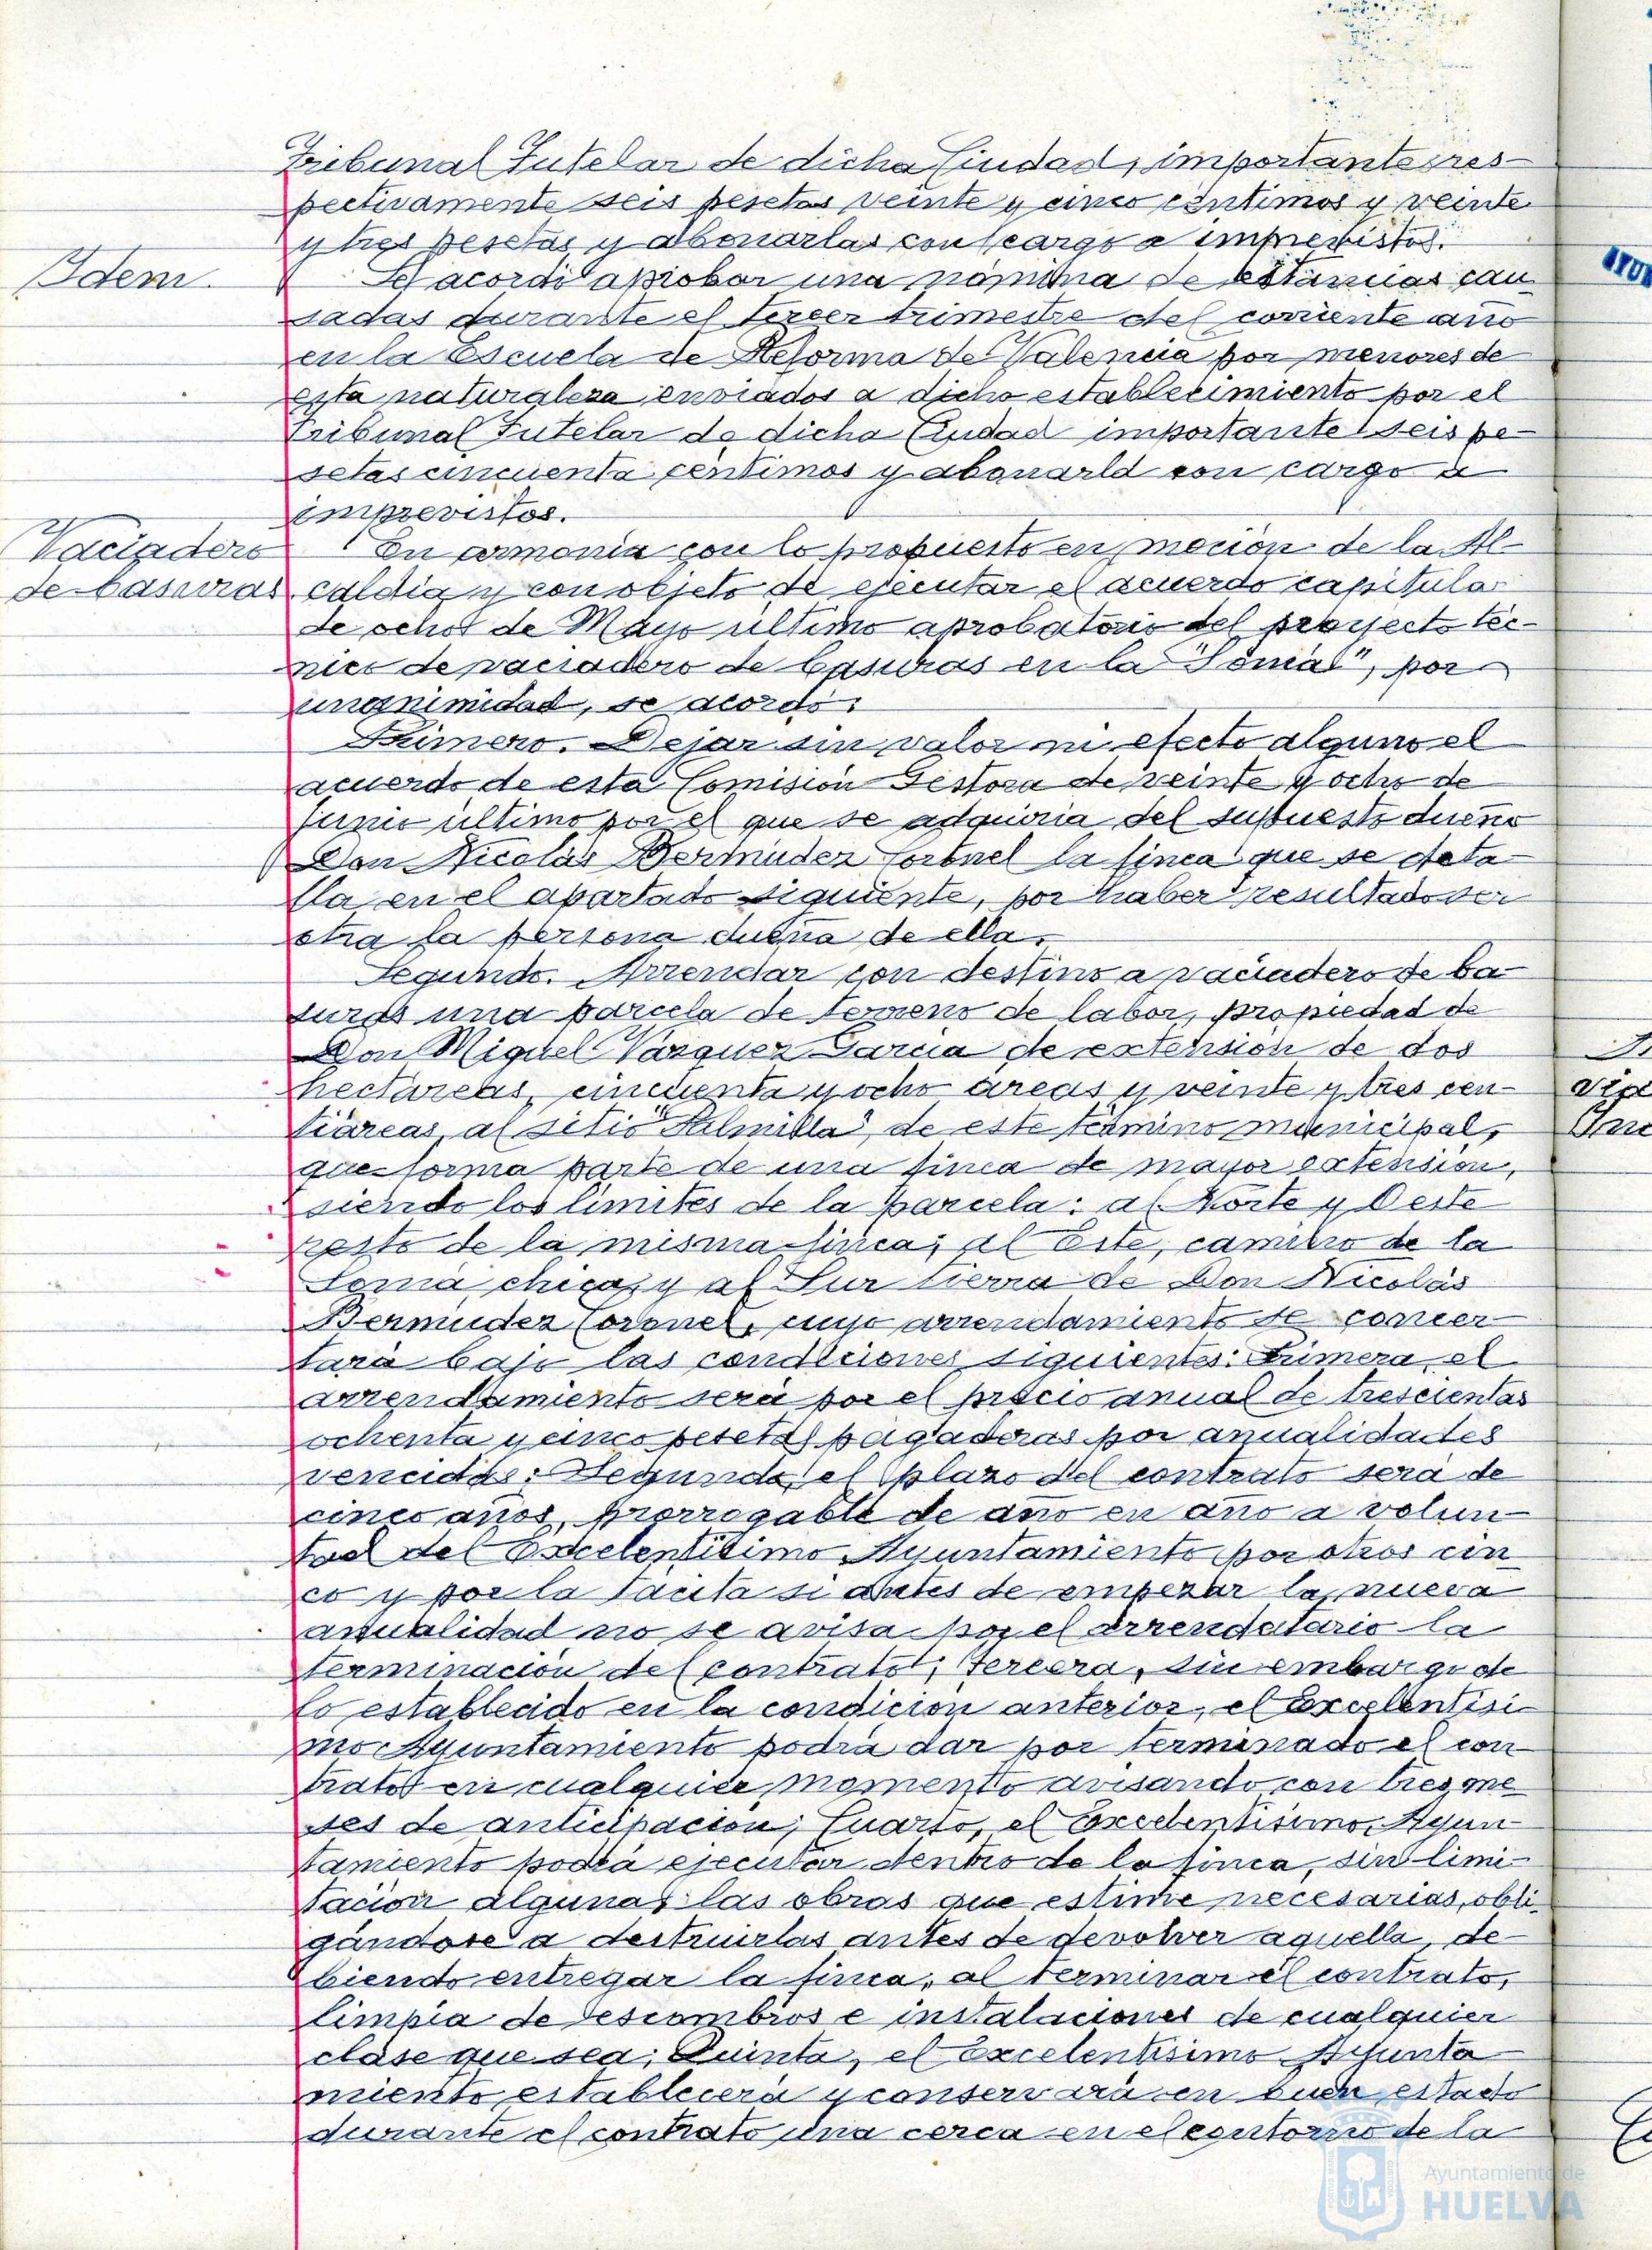 Tribunal Tutelar de dicha Ciudad, importantes res-
pectivamente seis pesetas veinte y cinco céntimos y veinte
y tres pesetas y abonarlas con cargo a imprevistos.
Idem.
Se acordó aprobar una nómina de estancias cau
sadas durante el tercer trimestre del corriente año
en la Escuela de Reforma de Valencia por menores de
esta naturaleza enviados a dicho establecimiento por el
Tribunal Tutelar de dicha Ciudad importante seis pe-
setas cincuenta céntimos y abonarla con cargo a
imprevistos.
Vaciadero
de basuras
En armonía con lo propuesto en moción de la Al-
caldía y con objeto de ejecutar el acuerdo capitular
de ocho de Mayo último aprobatorio del proyecto téc-
nico de vaciadero de basuras en la "Joma", por
unanimidad, se acordó:
Primero. Dejar sin valor ni efecto alguno el
acuerdo de esta Comisión Gestora de veinte y ocho de
Junio último por el que se adquiría del supuesto dueño
Don Nicolás Bermúdez Coronel la finca que se deta-
lla en el apartado siguiente, por haber resultado ser
otra la persona dueña de ella.
Segundo. Arrendar con destino a vaciadero de ba-
suras una parcela de terreno de labor, propiedad de
Don Miguel Vázquez García de extensión de dos
hectáreas, cincuenta y ocho áreas y veinte y tres cen-
tiáreas, al sitio "Almilla", de este término municipal,
que forma parte de una finca de mayor extensión,
siendo los límites de la parcela: al Norte y Oeste
resto de la misma finca; al Este, camino de la
Joma chica, y al Sur tierra de Don Nicolás
Bermúdez Coronel, cuyo arrendamiento se concer-
tará bajo las condiciones siguientes: Primera, el
arrendamiento será por el precio anual de trescientas
ochenta y cinco pesetas pagaderas por anualidades
vencidas; Segunda, el plazo del contrato será de
cinco años, prorrogable de año en año a volun-
tad del Excelentísimo Ayuntamiento por otros cin
co y por la tácita si antes de empezar la nueva
anualidad no se avisa por el arrendatario la
terminación del contrato; Tercera, sin embargo de
lo establecido en la condición anterior, el Excelentísi
mo Ayuntamiento podrá dar por terminado el con
trato en cualquier momento avisando con tres me
ses de anticipación; Cuarto, el Excelentísimo Ayun-
tamiento podrá ejecutar dentro de la finca, sin limi-
tación alguna, las obras que estime necesarias, obli
gándose a destruirlas antes de devolver aquella, de-
biendo entregar la finca, al terminar el contrato,
limpia de descombros e instalaciones de cualquier
clase que sea; Quinta, el Excelentísimo Ayunta
miento establecerá y conservará en buen estado
durante el contrato una cerca en el contorno de la
Ayuntamiento de
HUELVA